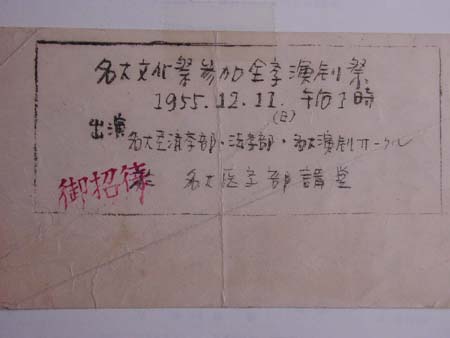 名大文化祭参加全学演劇祭
1955.12.11. 午后1時
(日)
出演 名大経済学部・法学部・名大演劇サークル
名大医学部講堂
御招待